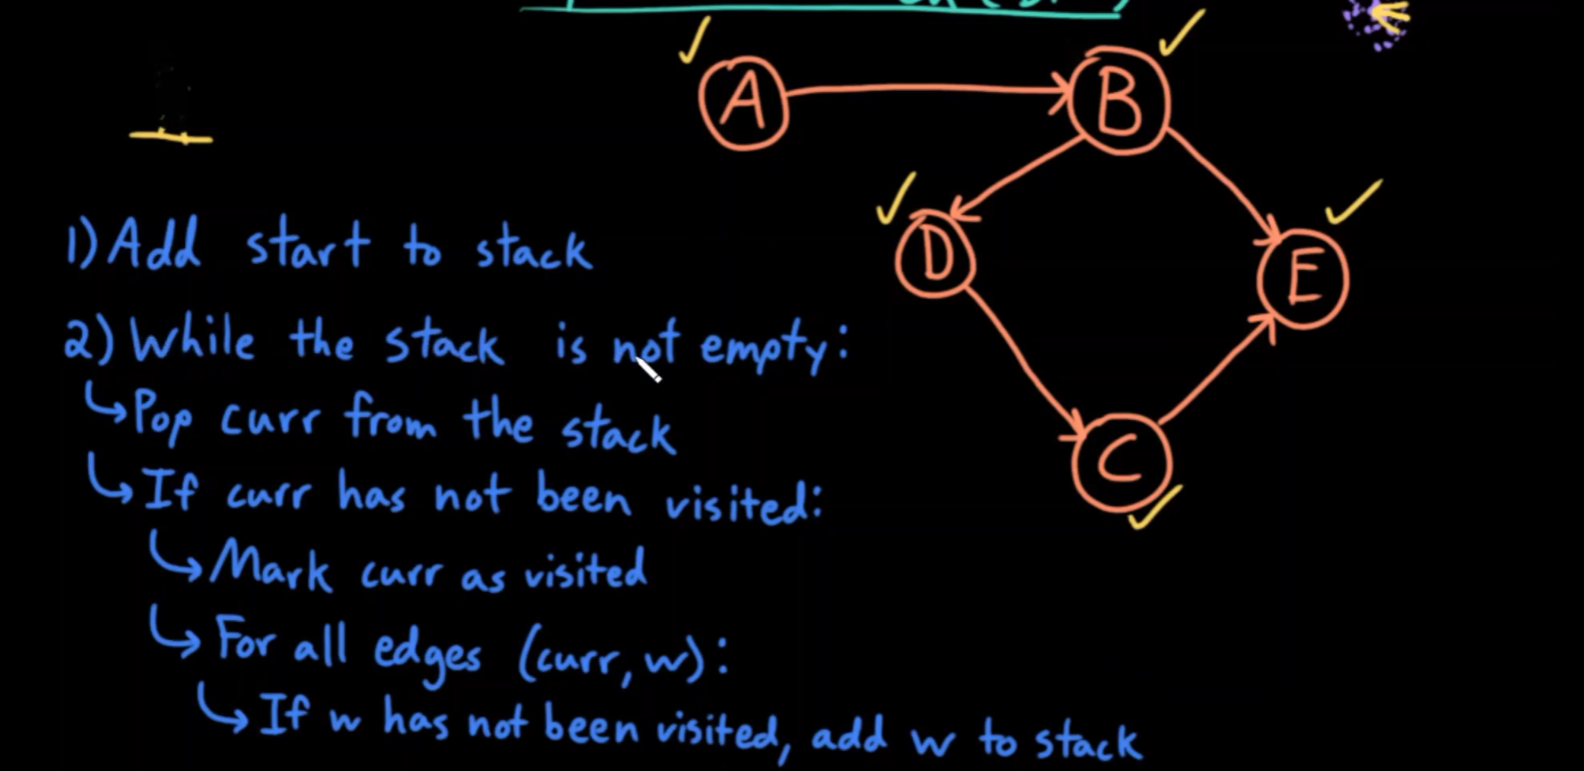 A
B
D
E
C
1) Add start to stack
2) While the stack is not empty:
↳ Pop curr from the stack
↳ If curr has not been visited:
↳ Mark curr as visited
↳ For all edges (curr, w):
↳ If w has not been visited, add w to stack